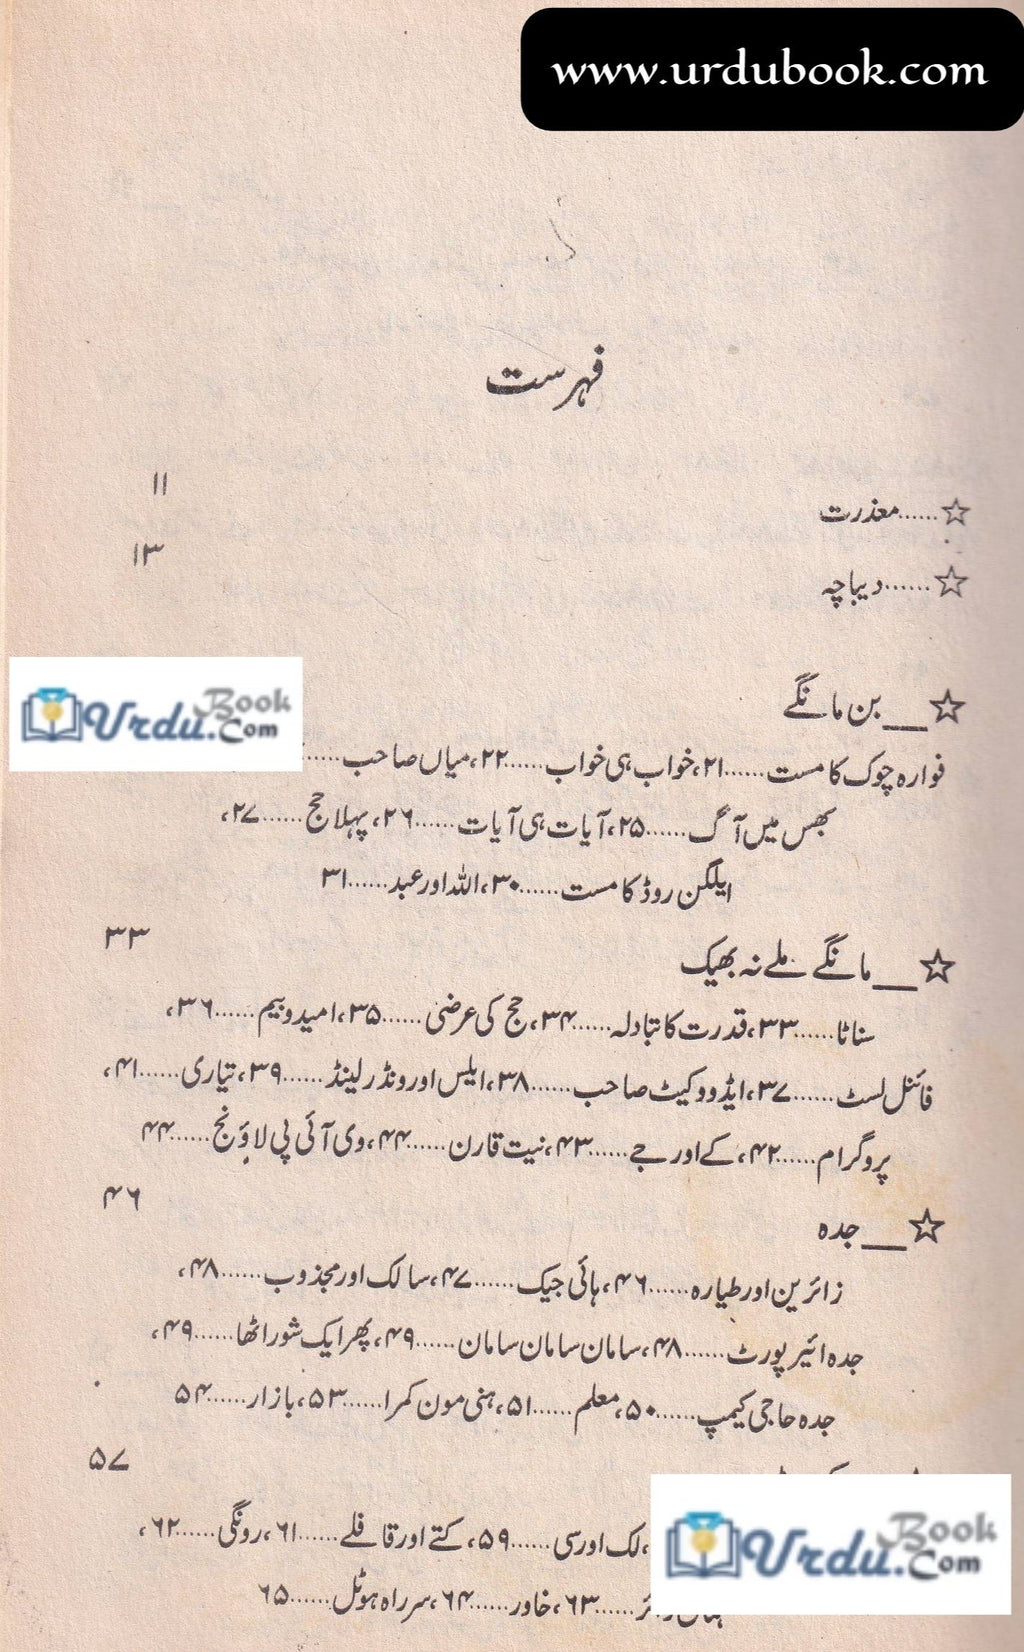 www.urdubook.com
فہرست
☆......معذرت ۱۱
☆......دیباچہ ۱۳
☆__بن مانگے
Urdu Book .Com
فوارہ چوک کا مست......۲۱، خواب ہی خواب......۲۲، میاں صاحب......
بھس میں آگ......۲۵، آیات ہی آیات......۲۶، پہلا حج......۲۷،
ایلگن روڈ کا مست......۳۰، اللہ اور عبد......۳۱
☆__مانگے ملے نہ بھیک ۳۳
سناٹا......۳۳، قدرت کا تبادلہ......۳۴، حج کی عرضی......۳۵، امید و بیم......۳۶،
فائنل لسٹ......۳۷، ایڈووکیٹ صاحب......۳۸، ایلس اور ونڈر لینڈ......۳۹، تیاری......۴۱،
پروگرام......۴۲، کے اور جے......۴۳، نیت قارن......۴۴، وی آئی پی لاؤنج......۴۴
☆__جدہ ۴۶
زائرین اور طیارہ......۴۶، ہائی جیک......۴۷، سالک اور مجذوب......۴۸،
جدہ ائیر پورٹ......۴۸، سامان سامان سامان......۴۹، پھر ایک شور اٹھا......۴۹،
جدہ حاجی کیمپ......۵۰، معلم......۵۱، ہنی مون کمرا......۵۳، بازار......۵۴
۵۷
، لک اور سی......۵۹، کتے اور قافلے......۶۱، رونگی......۶۲،
......۶۳، خاور......۶۴، سر راہ ہوٹل......۶۵
Urdu Book .Com